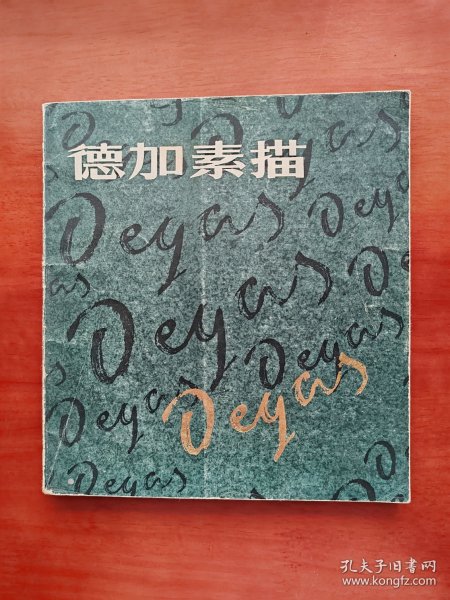 德加素描
Degas
Degas
Degas
Degas
Degas
Degas
Degas
孔夫子旧书网
www.kongfz.com